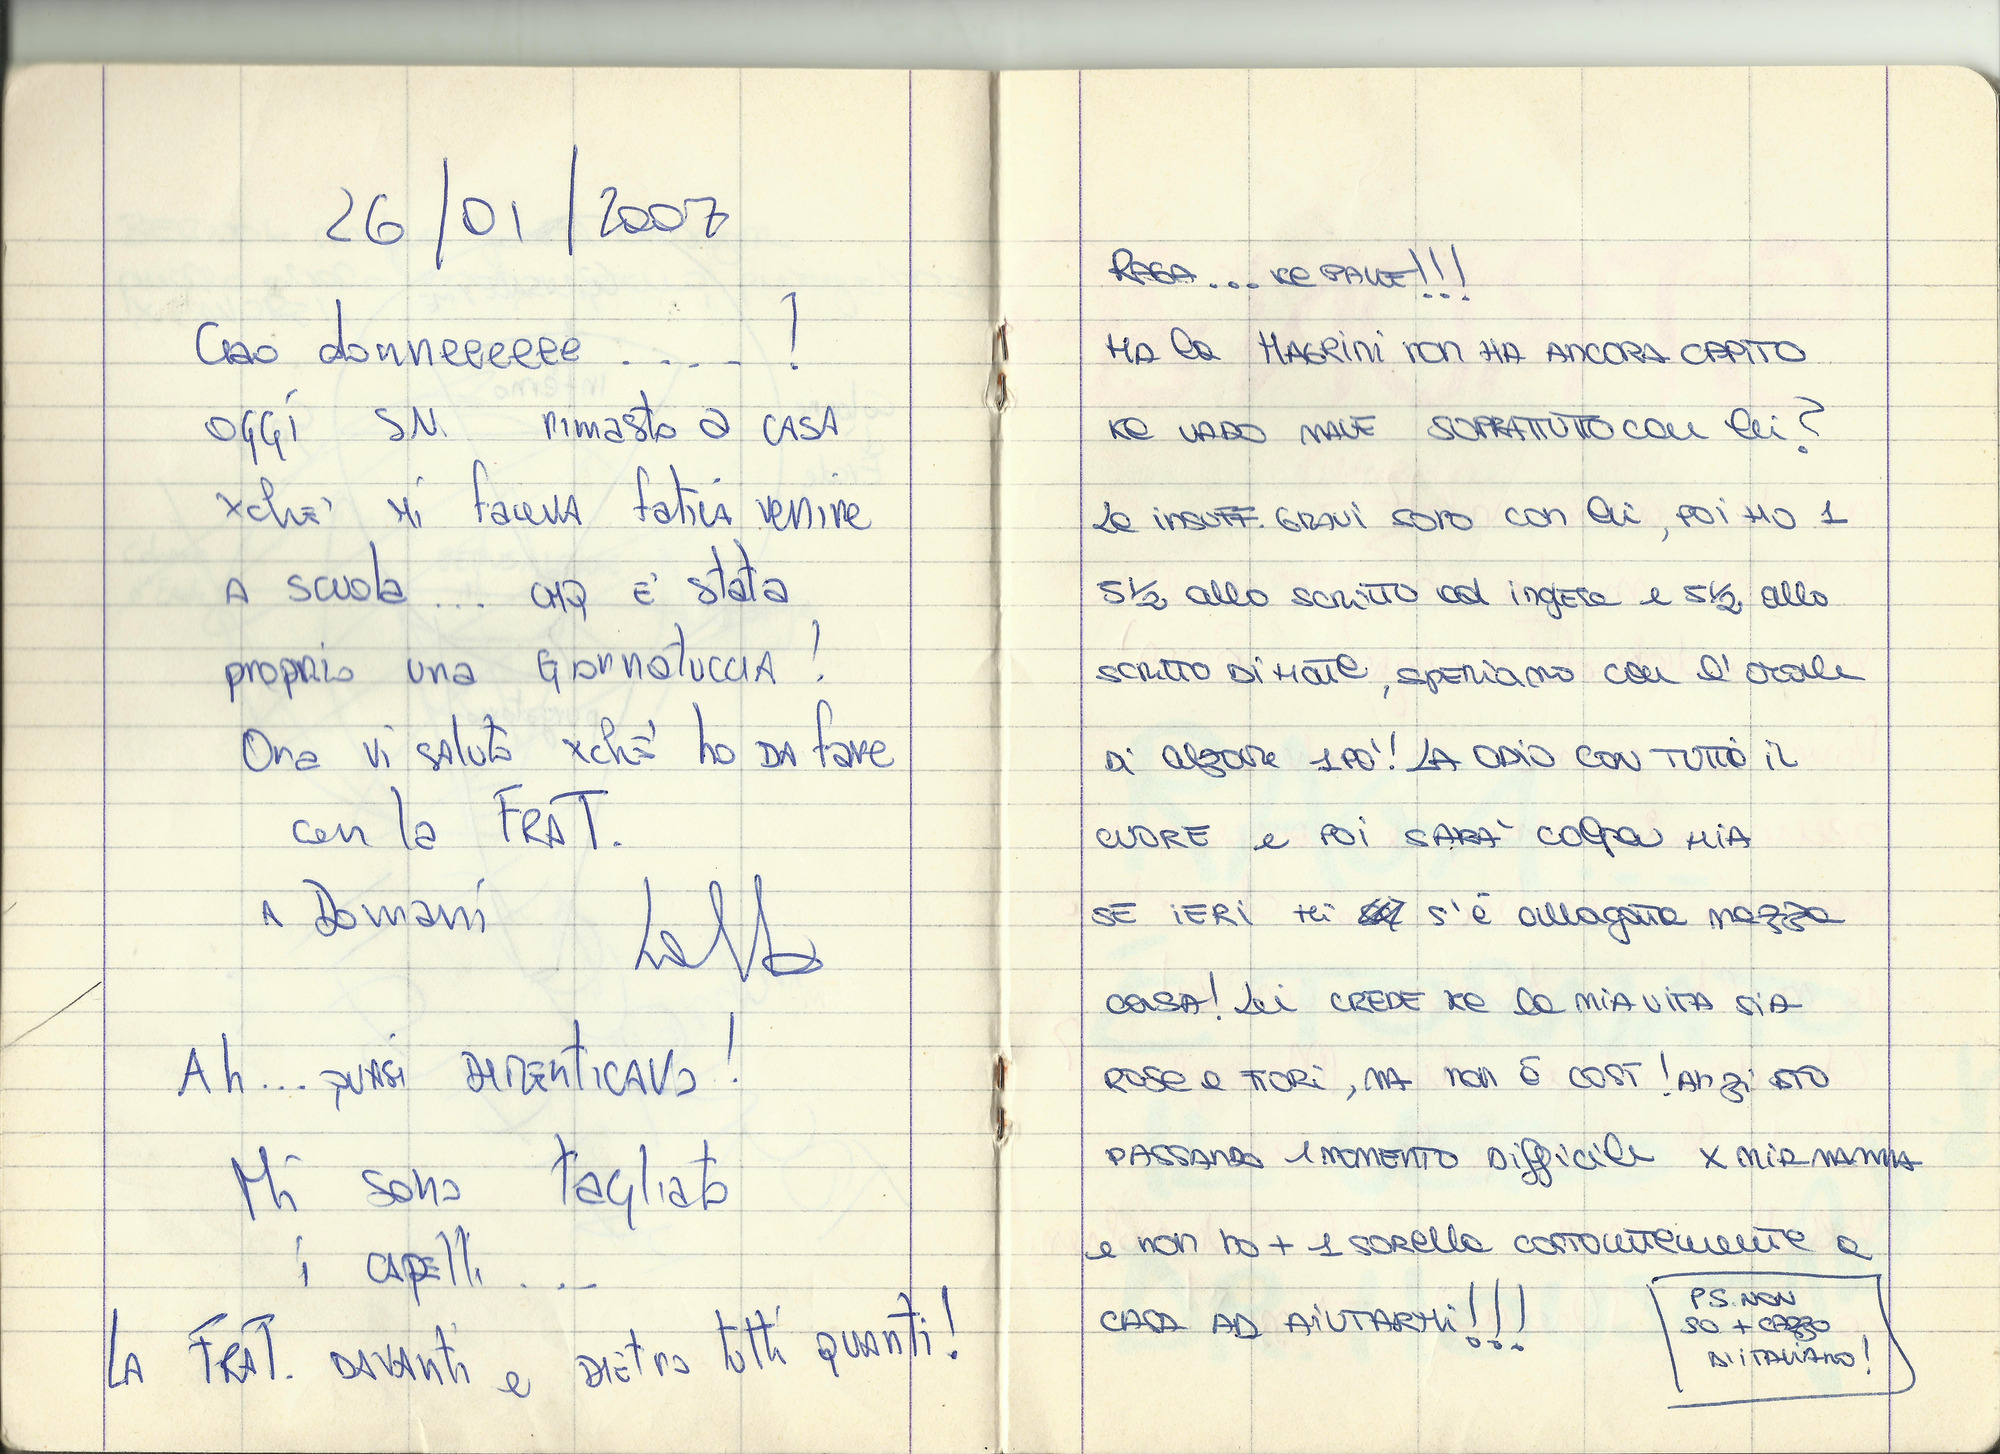 26/01/2007
Ciao donneeeeeee .....!
OGGi SN. rimasto a CASA
xchè Mi faceva fatica venire
A scuola... CMQ E' stata
proprio una GiornatucciA!
Ora Vi saluto xchè ho DA fare
con la FRAT.
A Domani
Ah...QUASi DiMEnticavo!
Mi sono tagliato
i CAPElli ....
LA FRAT. DAVANti e DiEtro tutti quanti!
RAGA.... Ke PALLE!!!
MA la MAGRiNi non HA ANCORA CAPITO
Ke VADO MALE SOPRATTUTTO con lei?
Le insuff. GRAVi sono con lei, poi HO 1
5½ allo scritto ad ingese e 5½ allo
scritto Di Mate, speriamo con l'orale
Di alzare 1 PO'! LA ODIO CON TUTTO il
CUORE e Poi SARA' colpa MiA
SE iERi Mi s'è allagata mezza
casa! Lei CREDE Ke la MiA ViTA SiA
ROSE e FiORi, MA non è COSì! Anzi STO
PASSANDO 1 MOMENTO Difficile X MiA MAMMA
e non ho + 1 sorella costantemente a
CASA AD AiUTARMi!!!
P.S. NON
SO + CAZZO
D'iTALiANO!